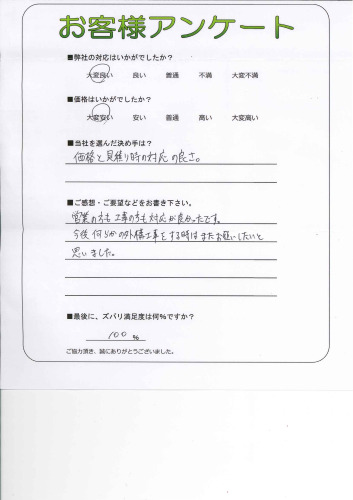 お客様アンケート
■弊社の対応はいかがでしたか?
大変良い 良い 普通 不満 大変不満
■価格はいかがでしたか?
大変安い 安い 普通 高い 大変高い
■当社を選んだ決め手は?
価格と見積り時の対応の良さ。
■ご感想・ご要望などをお書き下さい。
営業の方も工事の方も対応が良かったです。
今後何らかの外構工事をする時はまたお願いしたいと
思いました。
■最後に、ズバリ満足度は何%ですか?
100 %
ご協力頂き、誠にありがとうございました。